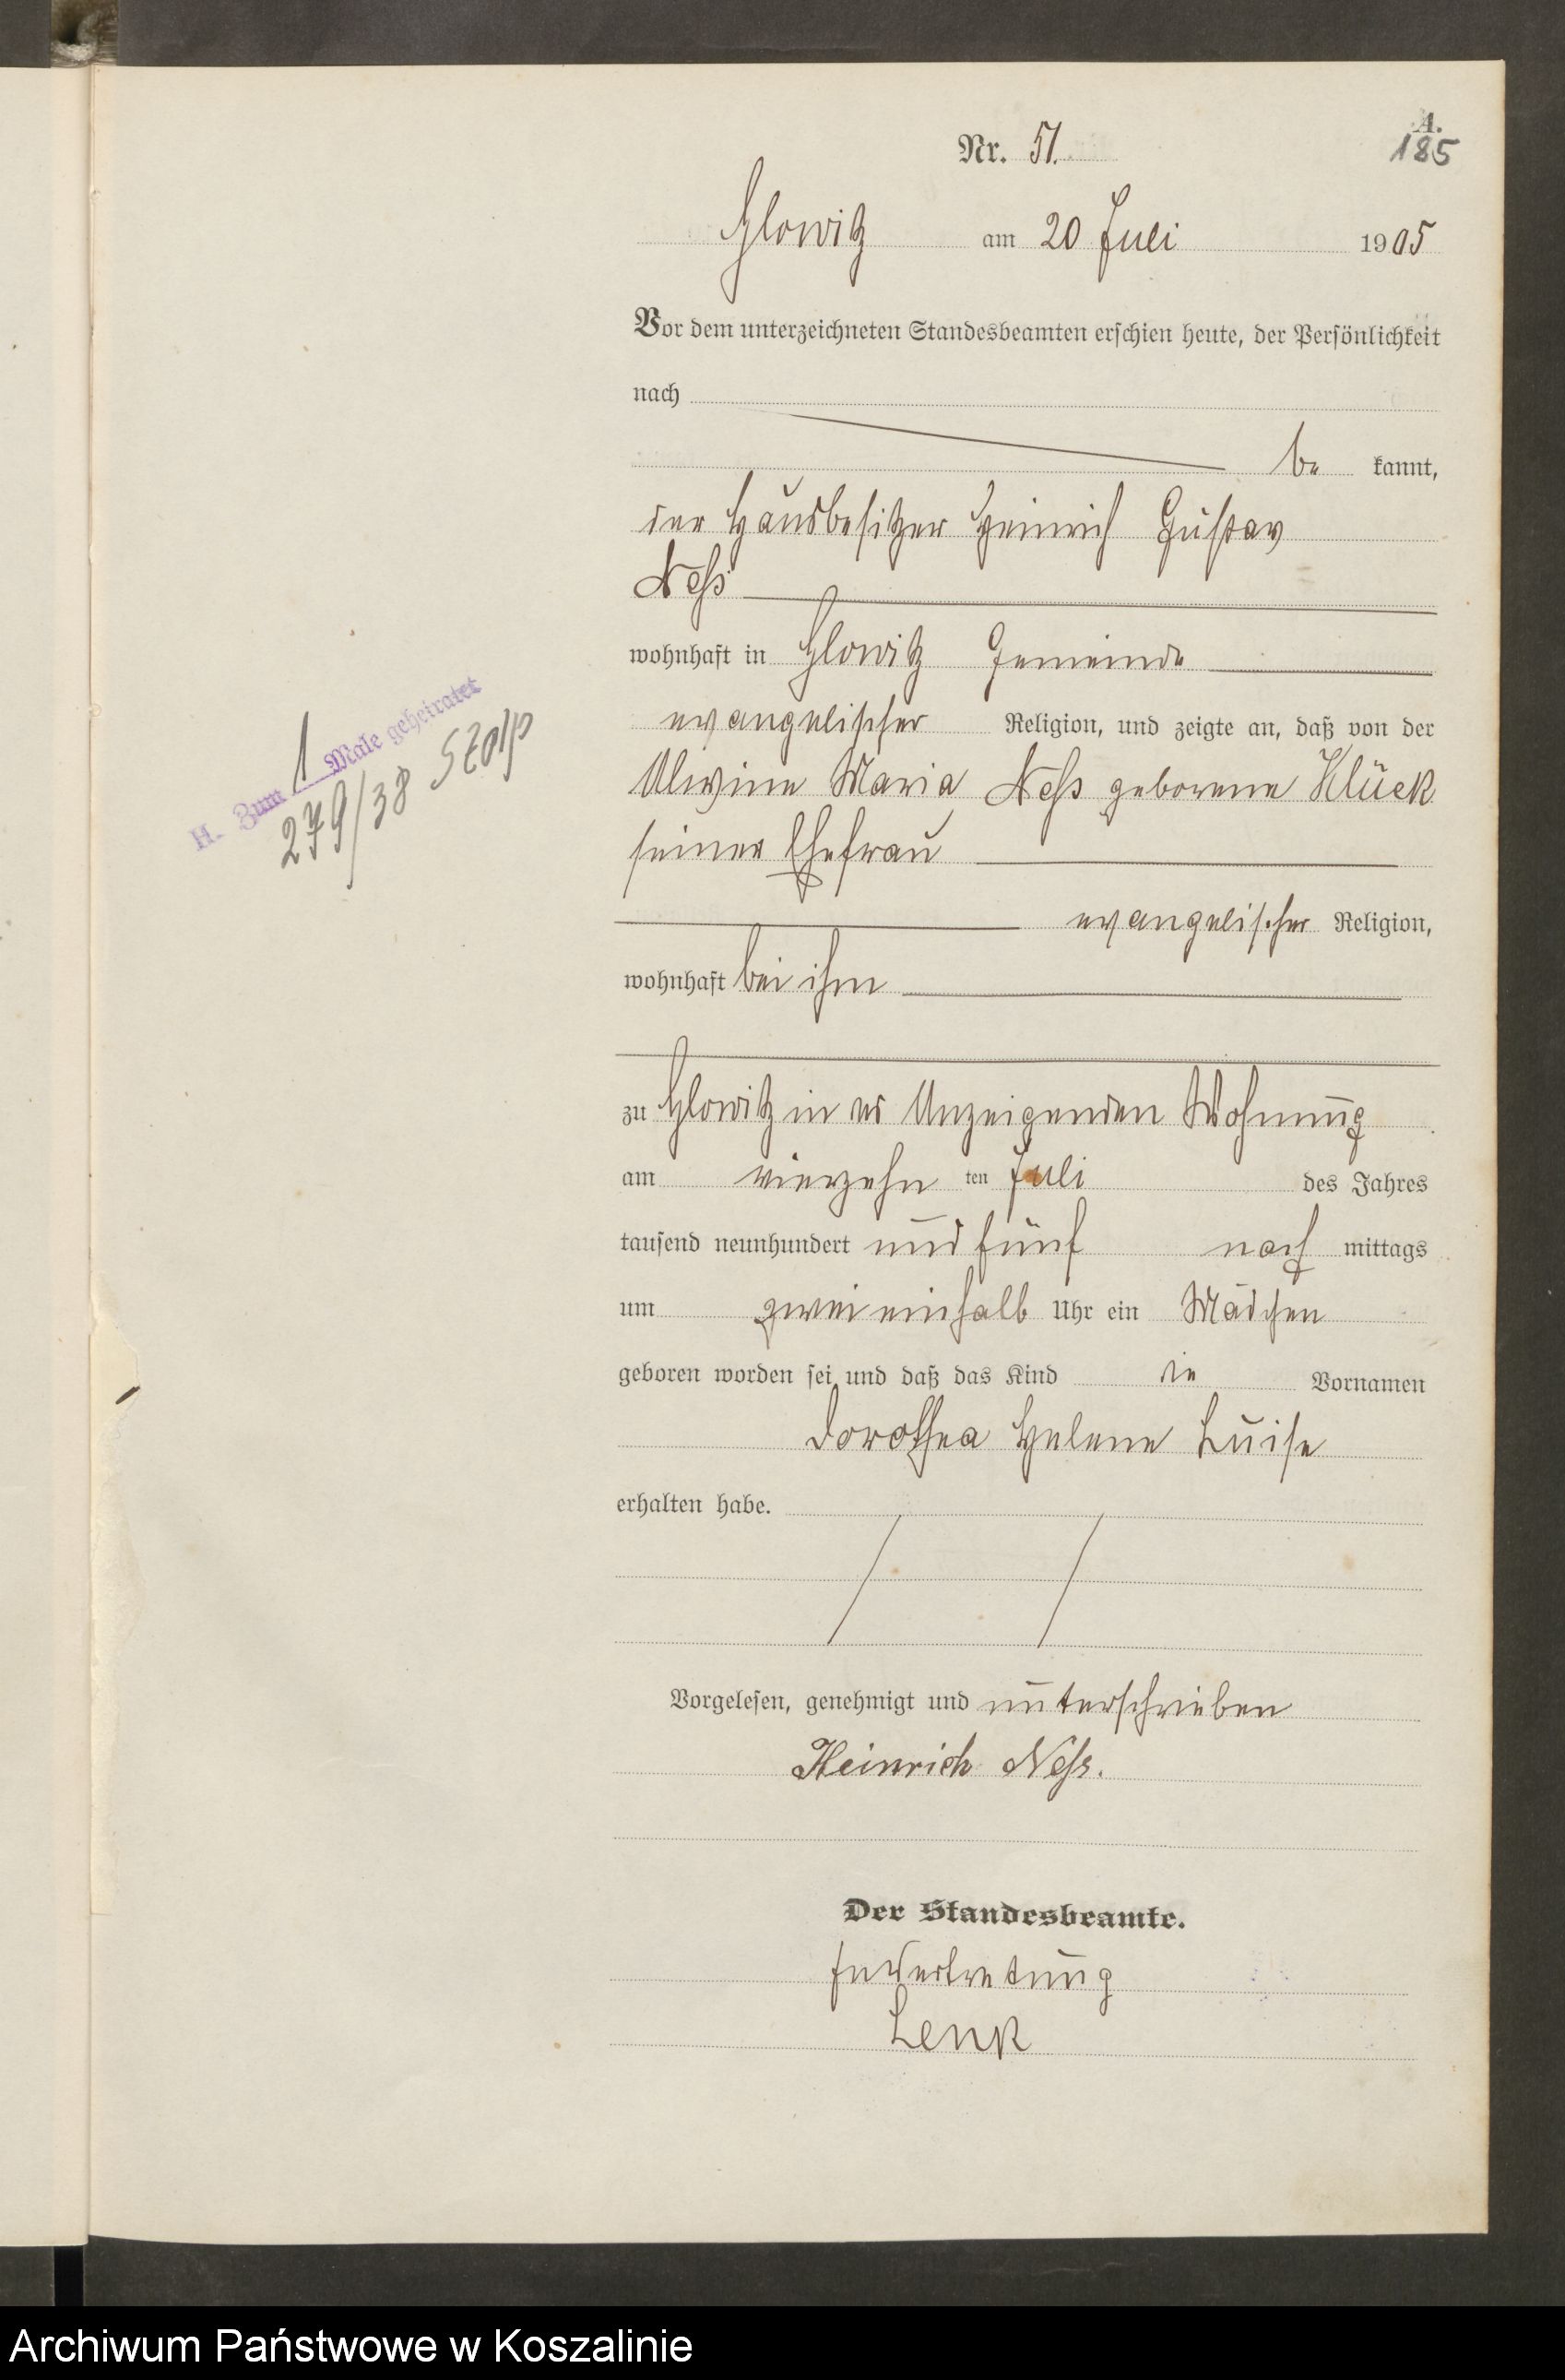 A.
185
Nr. 51.
Glowitz am 20 Juli 1905
Vor dem unterzeichneten Standesbeamten erschien heute, der Persönlichkeit
nach
be kannt,
der Hausbesitzer Heinrich Gustav
Neß
wohnhaft in Glowitz Gemeinde
evangelischer Religion, und zeigte an, daß von der
Alwine Maria Neß geborene Klück
seiner Ehefrau
evangelischer Religion,
wohnhaft bei ihm
zu Glowitz in des Anzeigenden Wohnung
am vierzehn ten Juli des Jahres
tausend neunhundert und fünf nach mittags
um zwei einhalb Uhr ein Mädchen
geboren worden sei und daß das Kind die Vornamen
Dorothea Helene Luise
erhalten habe.
Vorgelesen, genehmigt und unterschrieben
Heinrich Neß.
Der Standesbeamte.
In Vertretung
Lenk
H. Zum 1 Male geheiratet
279/38 Stolp
Archiwum Państwowe w Koszalinie